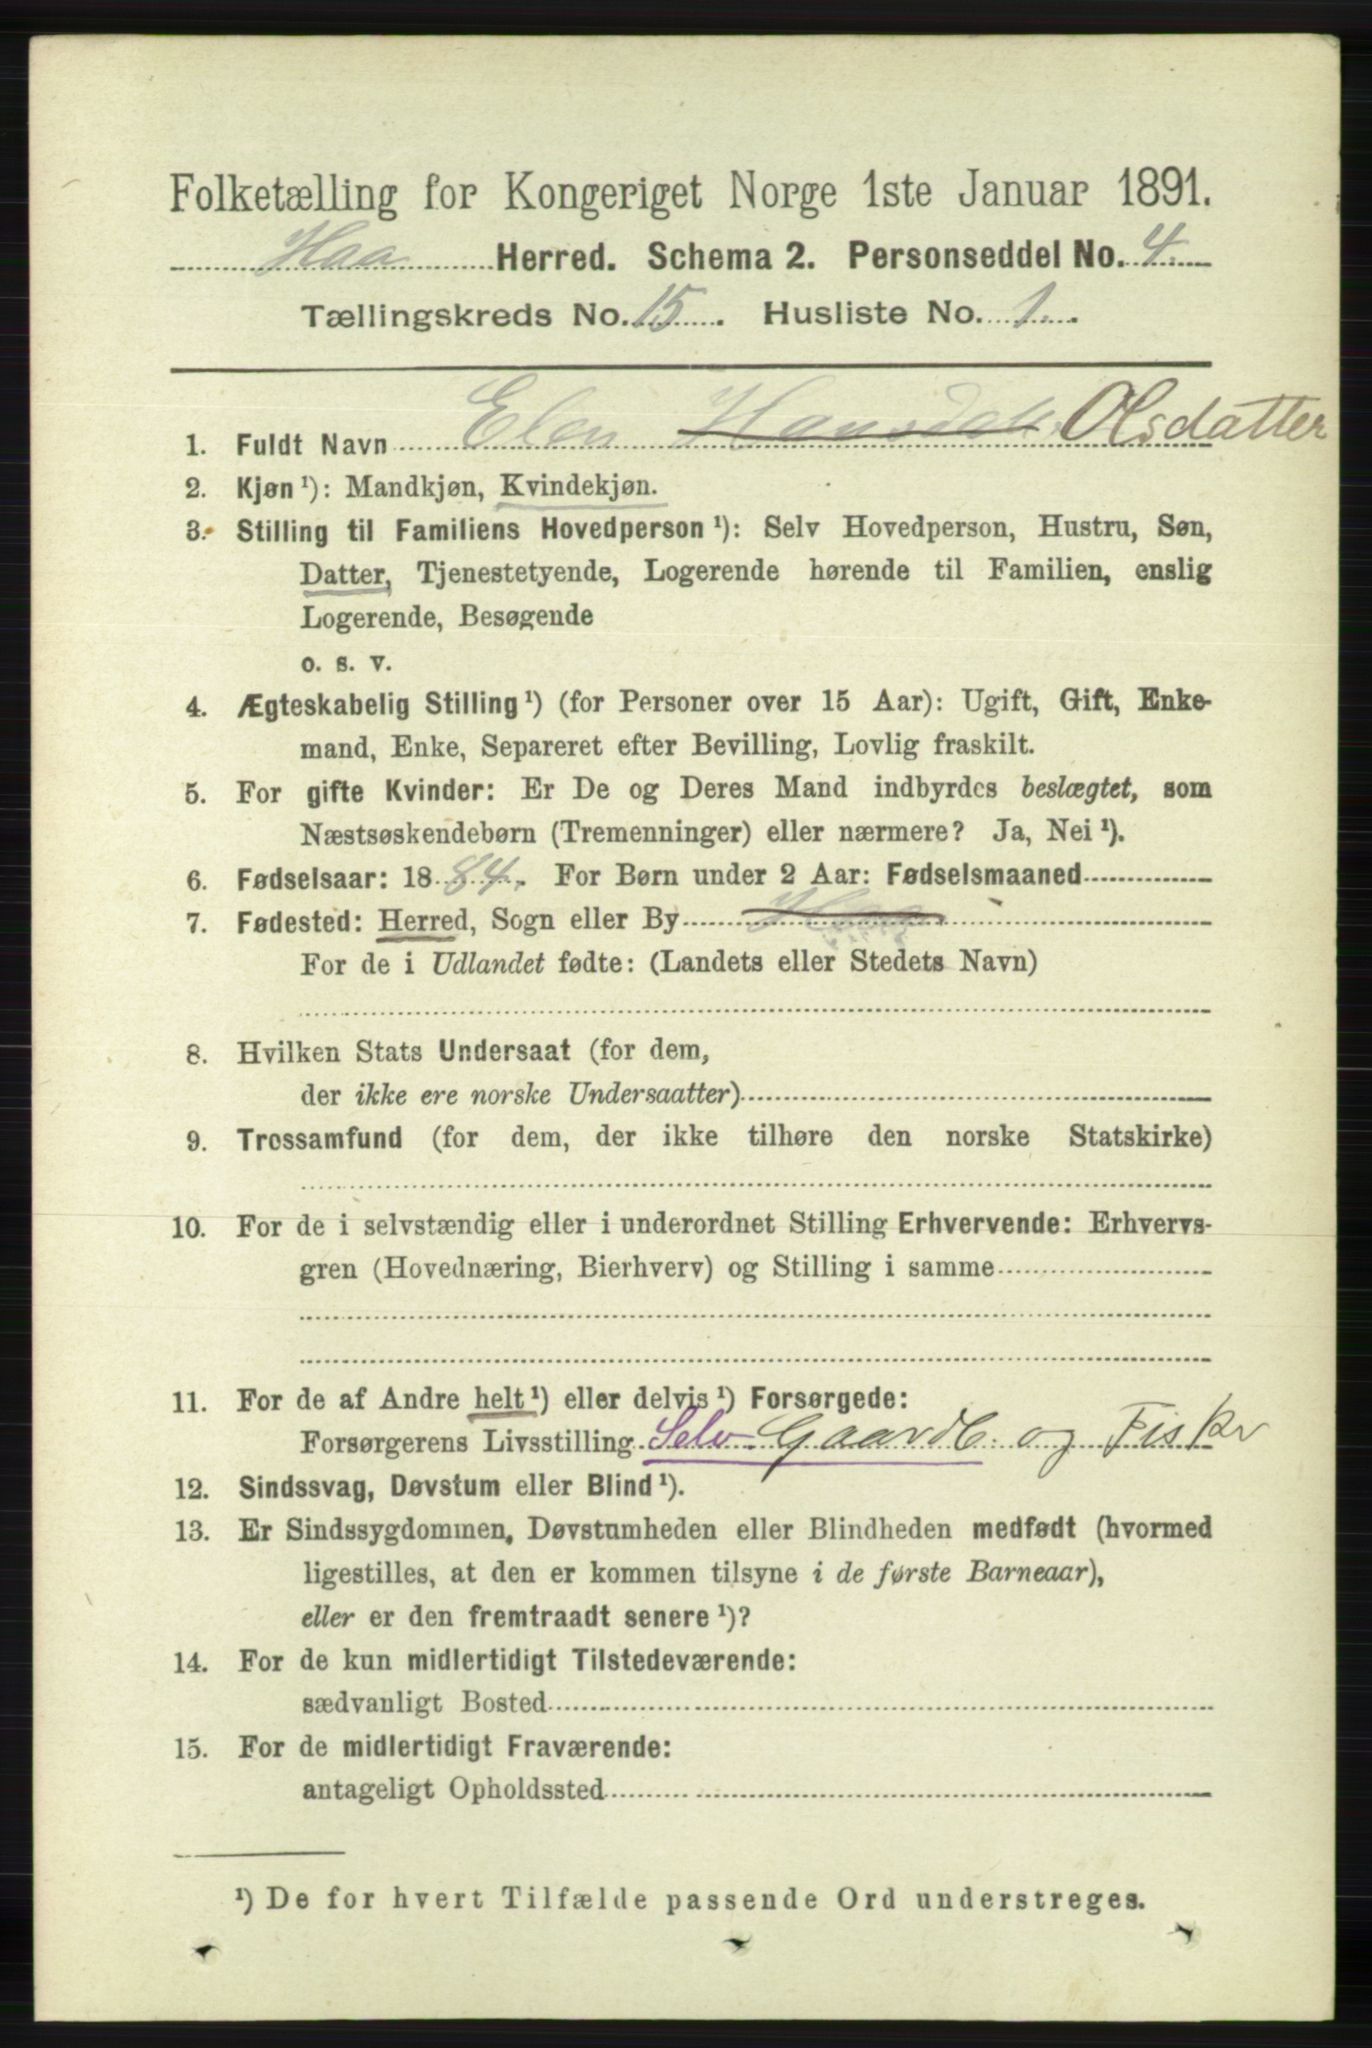 Folketælling for Kongeriget Norge 1ste Januar 1891.
Haa Herred. Schema 2. Personseddel No. 4.
Tællingskreds No. 15. Husliste No. 1.
1. Fuldt Navn Elen Hansdat. Olsdatter
2. Kjøn ¹): Mandkjøn, Kvindekjøn.
3. Stilling til Familiens Hovedperson ¹): Selv Hovedperson, Hustru, Søn,
Datter, Tjenestetyende, Logerende hørende til Familien, enslig
Logerende, Besøgende
o. s. v.
4. Ægteskabelig Stilling ¹) (for Personer over 15 Aar): Ugift, Gift, Enke-
mand, Enke, Separeret efter Bevilling, Lovlig fraskilt.
5. For gifte Kvinder: Er De og Deres Mand indbyrdes beslægtet, som
Næstsøskendebørn (Tremenninger) eller nærmere? Ja, Nei ¹).
6. Fødselsaar: 1884. For Børn under 2 Aar: Fødselsmaaned
7. Fødested: Herred, Sogn eller By Haa
For de i Udlandet fødte: (Landets eller Stedets Navn)
8. Hvilken Stats Undersaat (for dem,
der ikke ere norske Undersaatter)
9. Trossamfund (for dem, der ikke tilhøre den norske Statskirke)
10. For de i selvstændig eller i underordnet Stilling Erhvervende: Erhvervs-
gren (Hovednæring, Bierhverv) og Stilling i samme
11. For de af Andre helt ¹) eller delvis ¹) Forsørgede:
Forsørgerens Livsstilling Selv Gaardb. og Fisker
12. Sindssvag, Døvstum eller Blind ¹).
13. Er Sindssygdommen, Døvstumheden eller Blindheden medfødt (hvormed
ligestilles, at den er kommen tilsyne i de første Barneaar),
eller er den fremtraadt senere ¹)?
14. For de kun midlertidigt Tilstedeværende:
sædvanligt Bosted
15. For de midlertidigt Fraværende:
antageligt Opholdssted
¹) De for hvert Tilfælde passende Ord understreges.